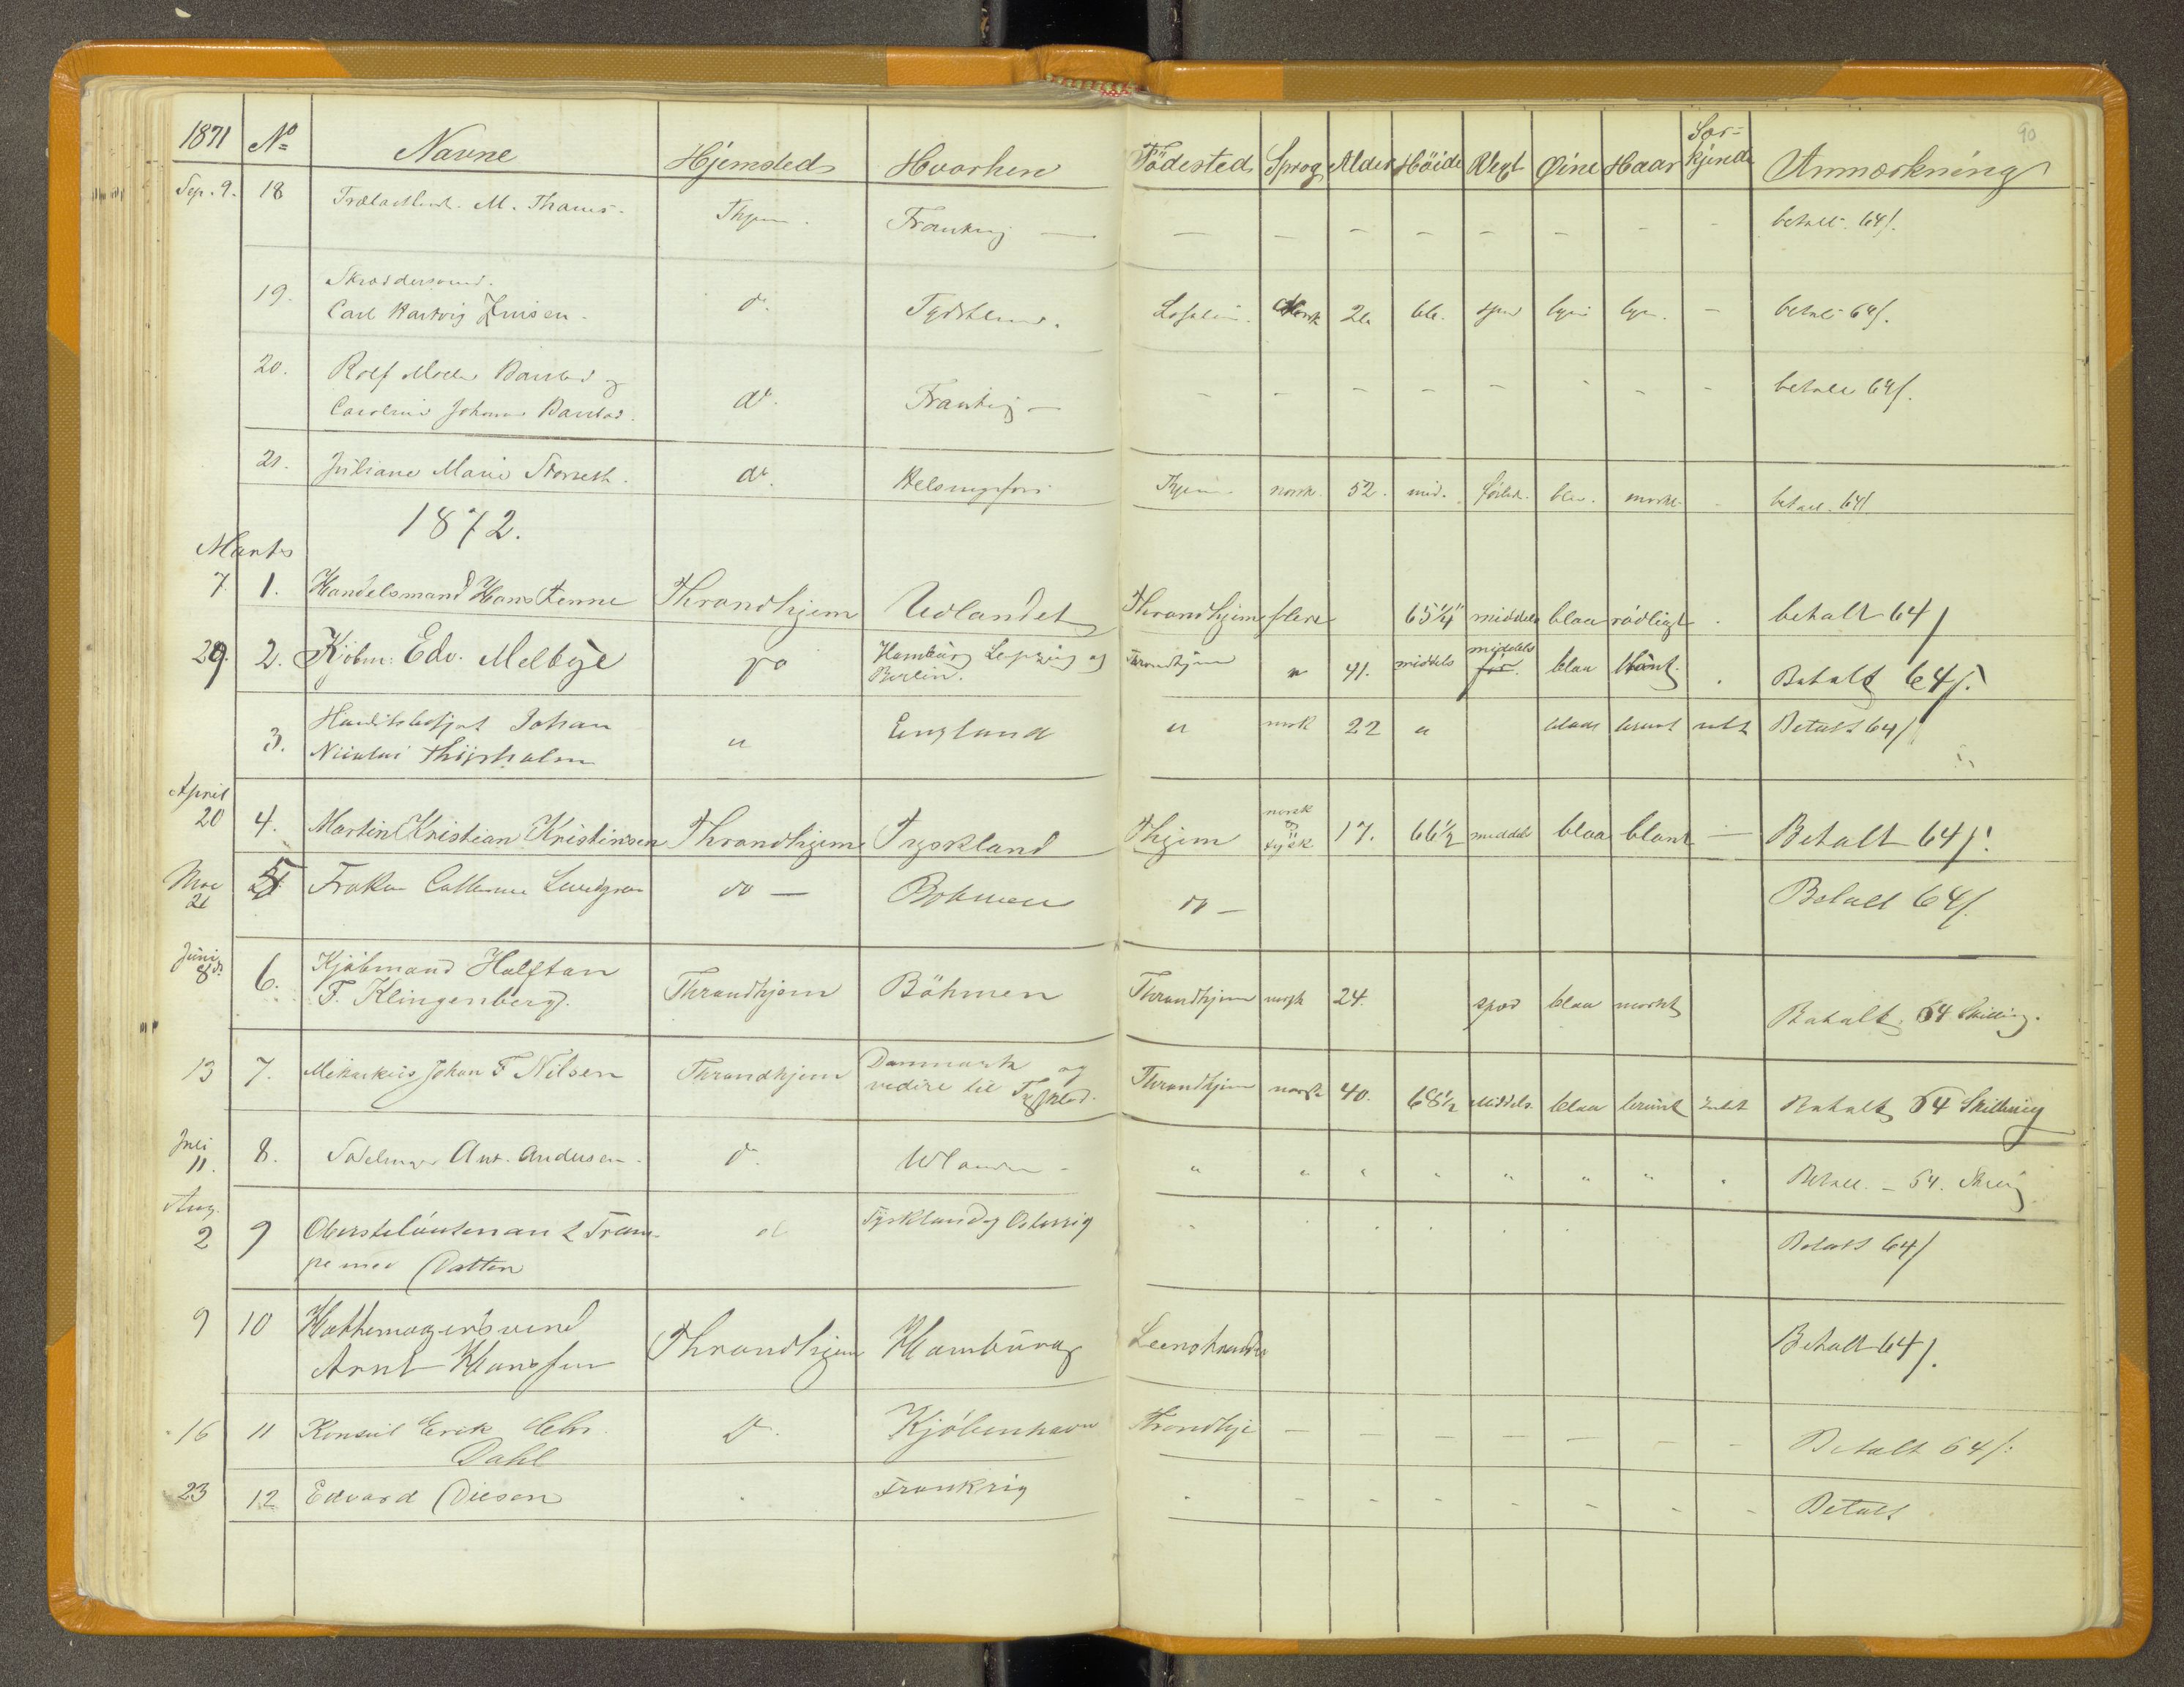 1871 No Navne Hjemsted Hvorhen Födested Sprog Alder Höide Vext Øine Haar Sær-kjende Anmærkning 90
Sep. 9. 18 M. Thams. Thjem. Frankrig — — — — — — — — — betalt 64/.
19. Skræddersvend.
Carl Hartvig do. Tydskland. norsk — betalt 64/.
20. Rolf Møller Barstad og
Caroline Johanne Barstad. do. Frankrig — — — — — — — — — betalt 64/.
21. Juliane Marie do. Helsingfors Thjem norsk. 52. mid. blaa. mørkt. betalt 64/
1872.
Marts
7. 1. Handelsmand Hans Throndhjem Udlandet Throndhjem flere 65¼" middels blaa rödligt . betalt 64/
29. 2. Kjöbm. Edv. Melbye do Hamburg Leipzig og
Berlin. Throndhjem " 41. middels middels blaa blont . Betalt 64/.
3. Johan
Nicolai England " norsk 22 " blaae brunt intet Betalt 64/
April
20 4. Martin Kristian Kristinsen Throndhjem Tyskland Thjem norsk
og
tysk 17. 66½ middels blaa blont — Betalt 64/.
Mai
21 5 Frøken do — Bohmen do — Betalt 64/.
Juni
8de 6. Kjöbmand Halftan
F. Klingenberg. Throndhjem Böhmen Throndhjem norsk 24. spæd blaa mørkt Betalt 64 Skilling.
13 7. Johan F Nilsen Throndhjem Danmark og
videre til Throndhjem norsk 40. 68½ Middels. blaa brunt Intet Betalt 64 Skilling
Juli
11. 8. Ant. Andersen. do. Udlandet " " " " " " " " Betalt — 64.
Aug.
2 9 Oberstelöutenant Tram-
pe med Datter do Tyskland og Østerrig Betalt 64/
9 10 Hattemagersvend
Arnt Hansen Throndhjem Hamburg Leenstranden Betalt 64/.
16 11 Konsul Erik Chr.
Dahl do. Kjöbenhavn Trondhje — — — — — — — Betalt 64/.
23 12 Edvard Diesen . Frankrig . — — — — — — — Betalt